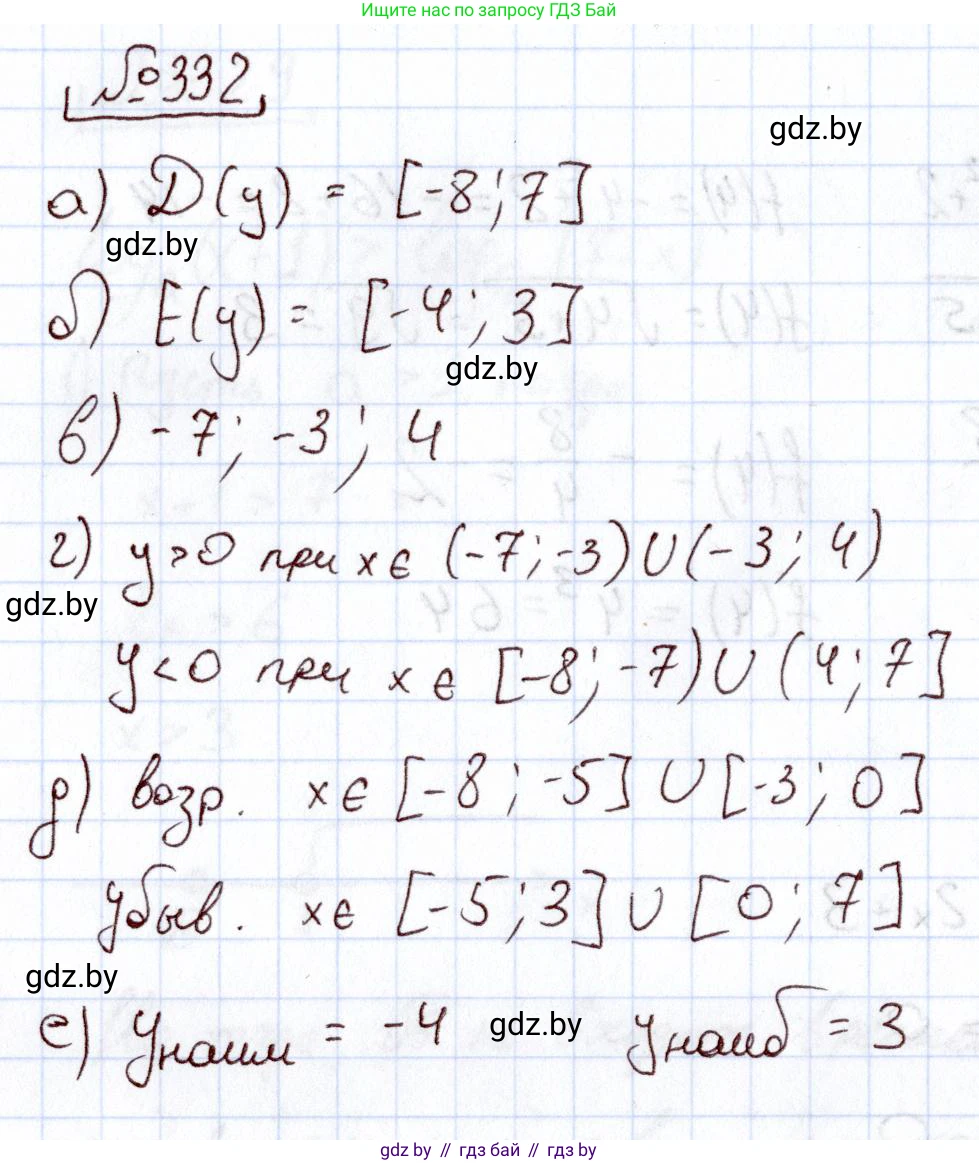 Ищите нас по запросу ГДЗ Бай
№332
gdz.by
а) D(y) = [-8; 7]
gdz.by
б) E(y) = [-4; 3]
gdz.by
в) -7; -3; 4
г) y>0 при x ∈ (-7; -3) ∪ (-3; 4)
gdz.by
y<0 при x ∈ [-8; -7) ∪ (4; 7]
д) возр. x ∈ [-8; -5] ∪ [-3; 0]
убыв. x ∈ [-5; 3] ∪ [0; 7]
gdz.by
е) yнаим = -4 gdz.by yнаиб = 3
gdz.by // гдз бай // гдз by